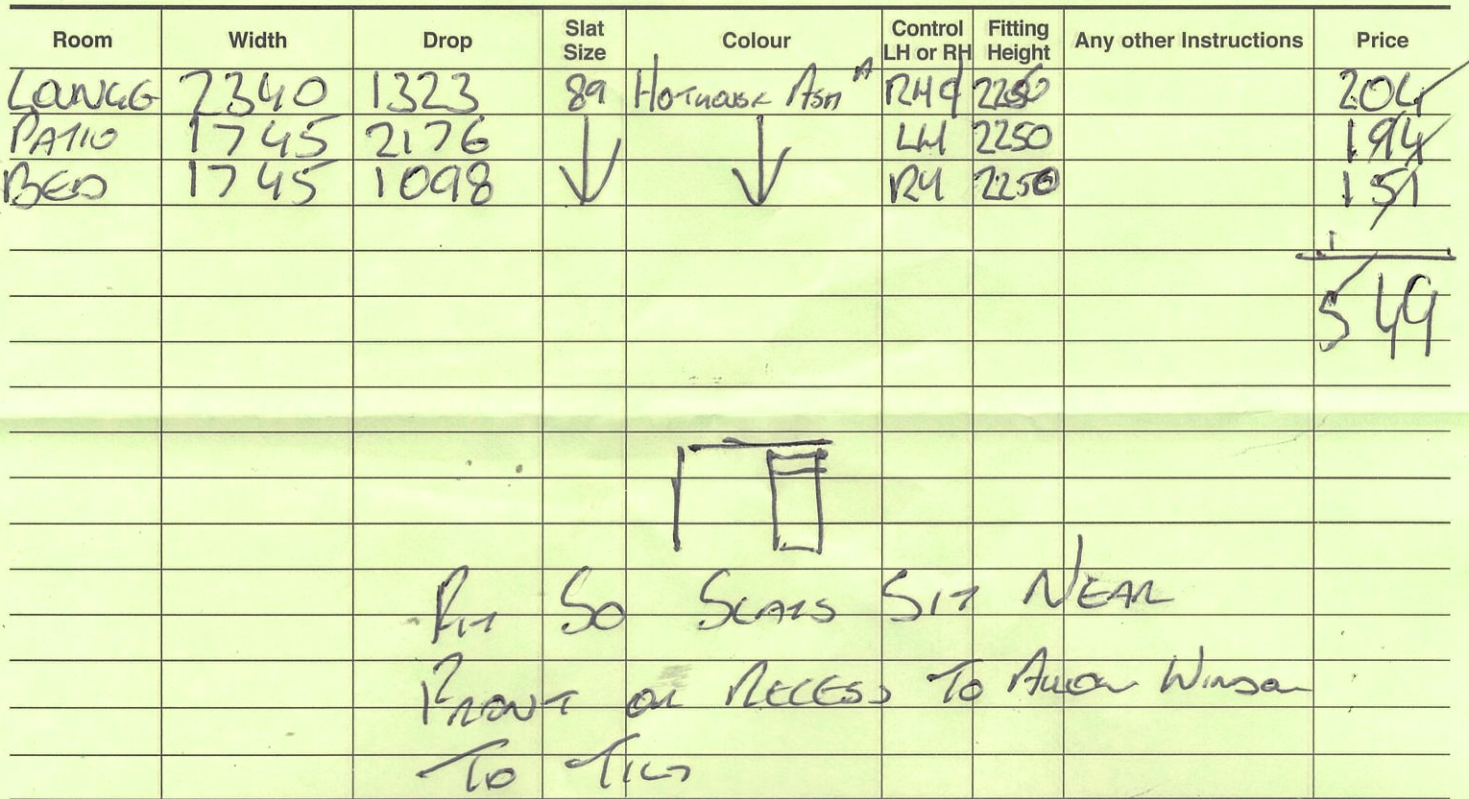 Room Width Drop Slat Size Colour Control LH or RH Fitting Height Any other Instructions Price
LOUNGE 2340 1323 89 HOTHOUSE ASH "A" RH 2250 204
PATIO 1745 2176 LH 2250 194
BED 1745 1098 RH 2250 151
549
FIT SO SLATS SIT NEAR
FRONT OF RECESS TO ALLOW WINDOW
TO TILT